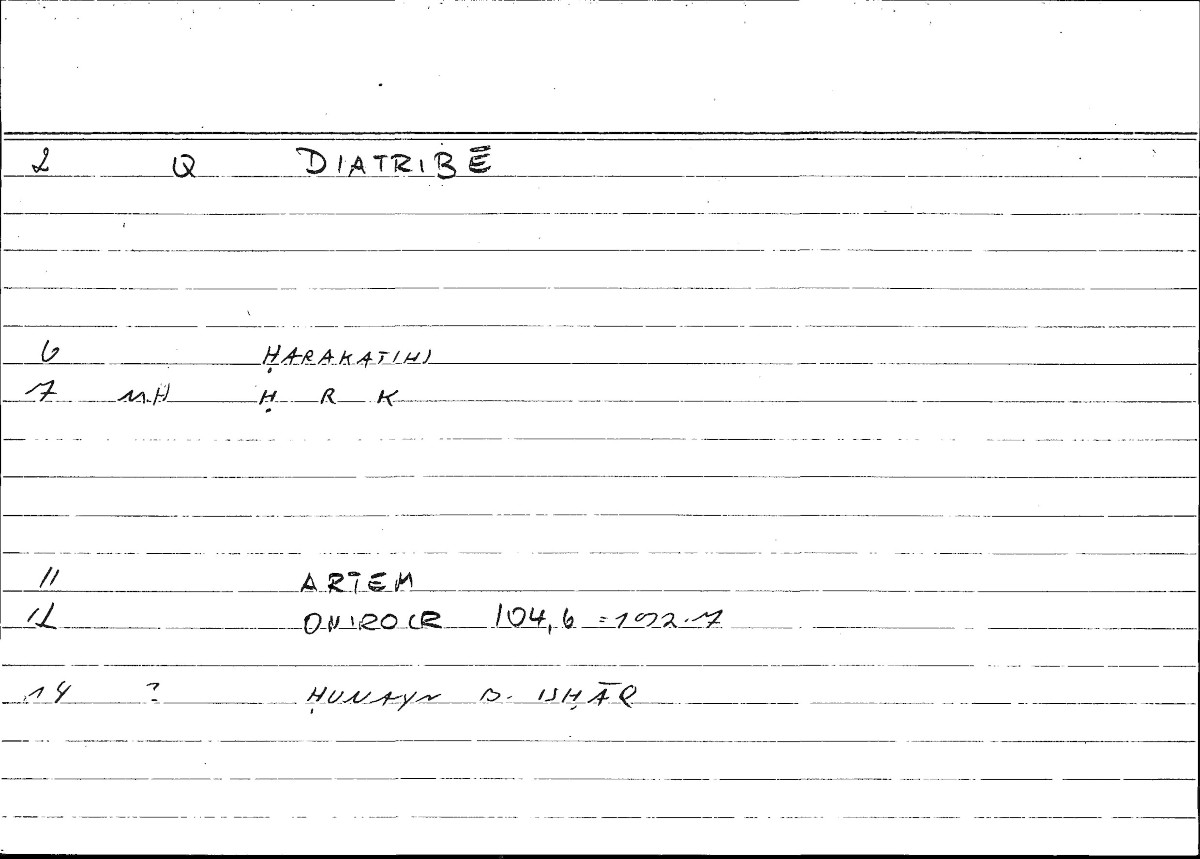 2 Q DIATRIBĒ
6 ḤARAKATIHI
7 MH Ḥ R K
11 ARTEM
12 ONIROCR 104,6 =
14 ? ḤUNAYN B. ISḤĀQ